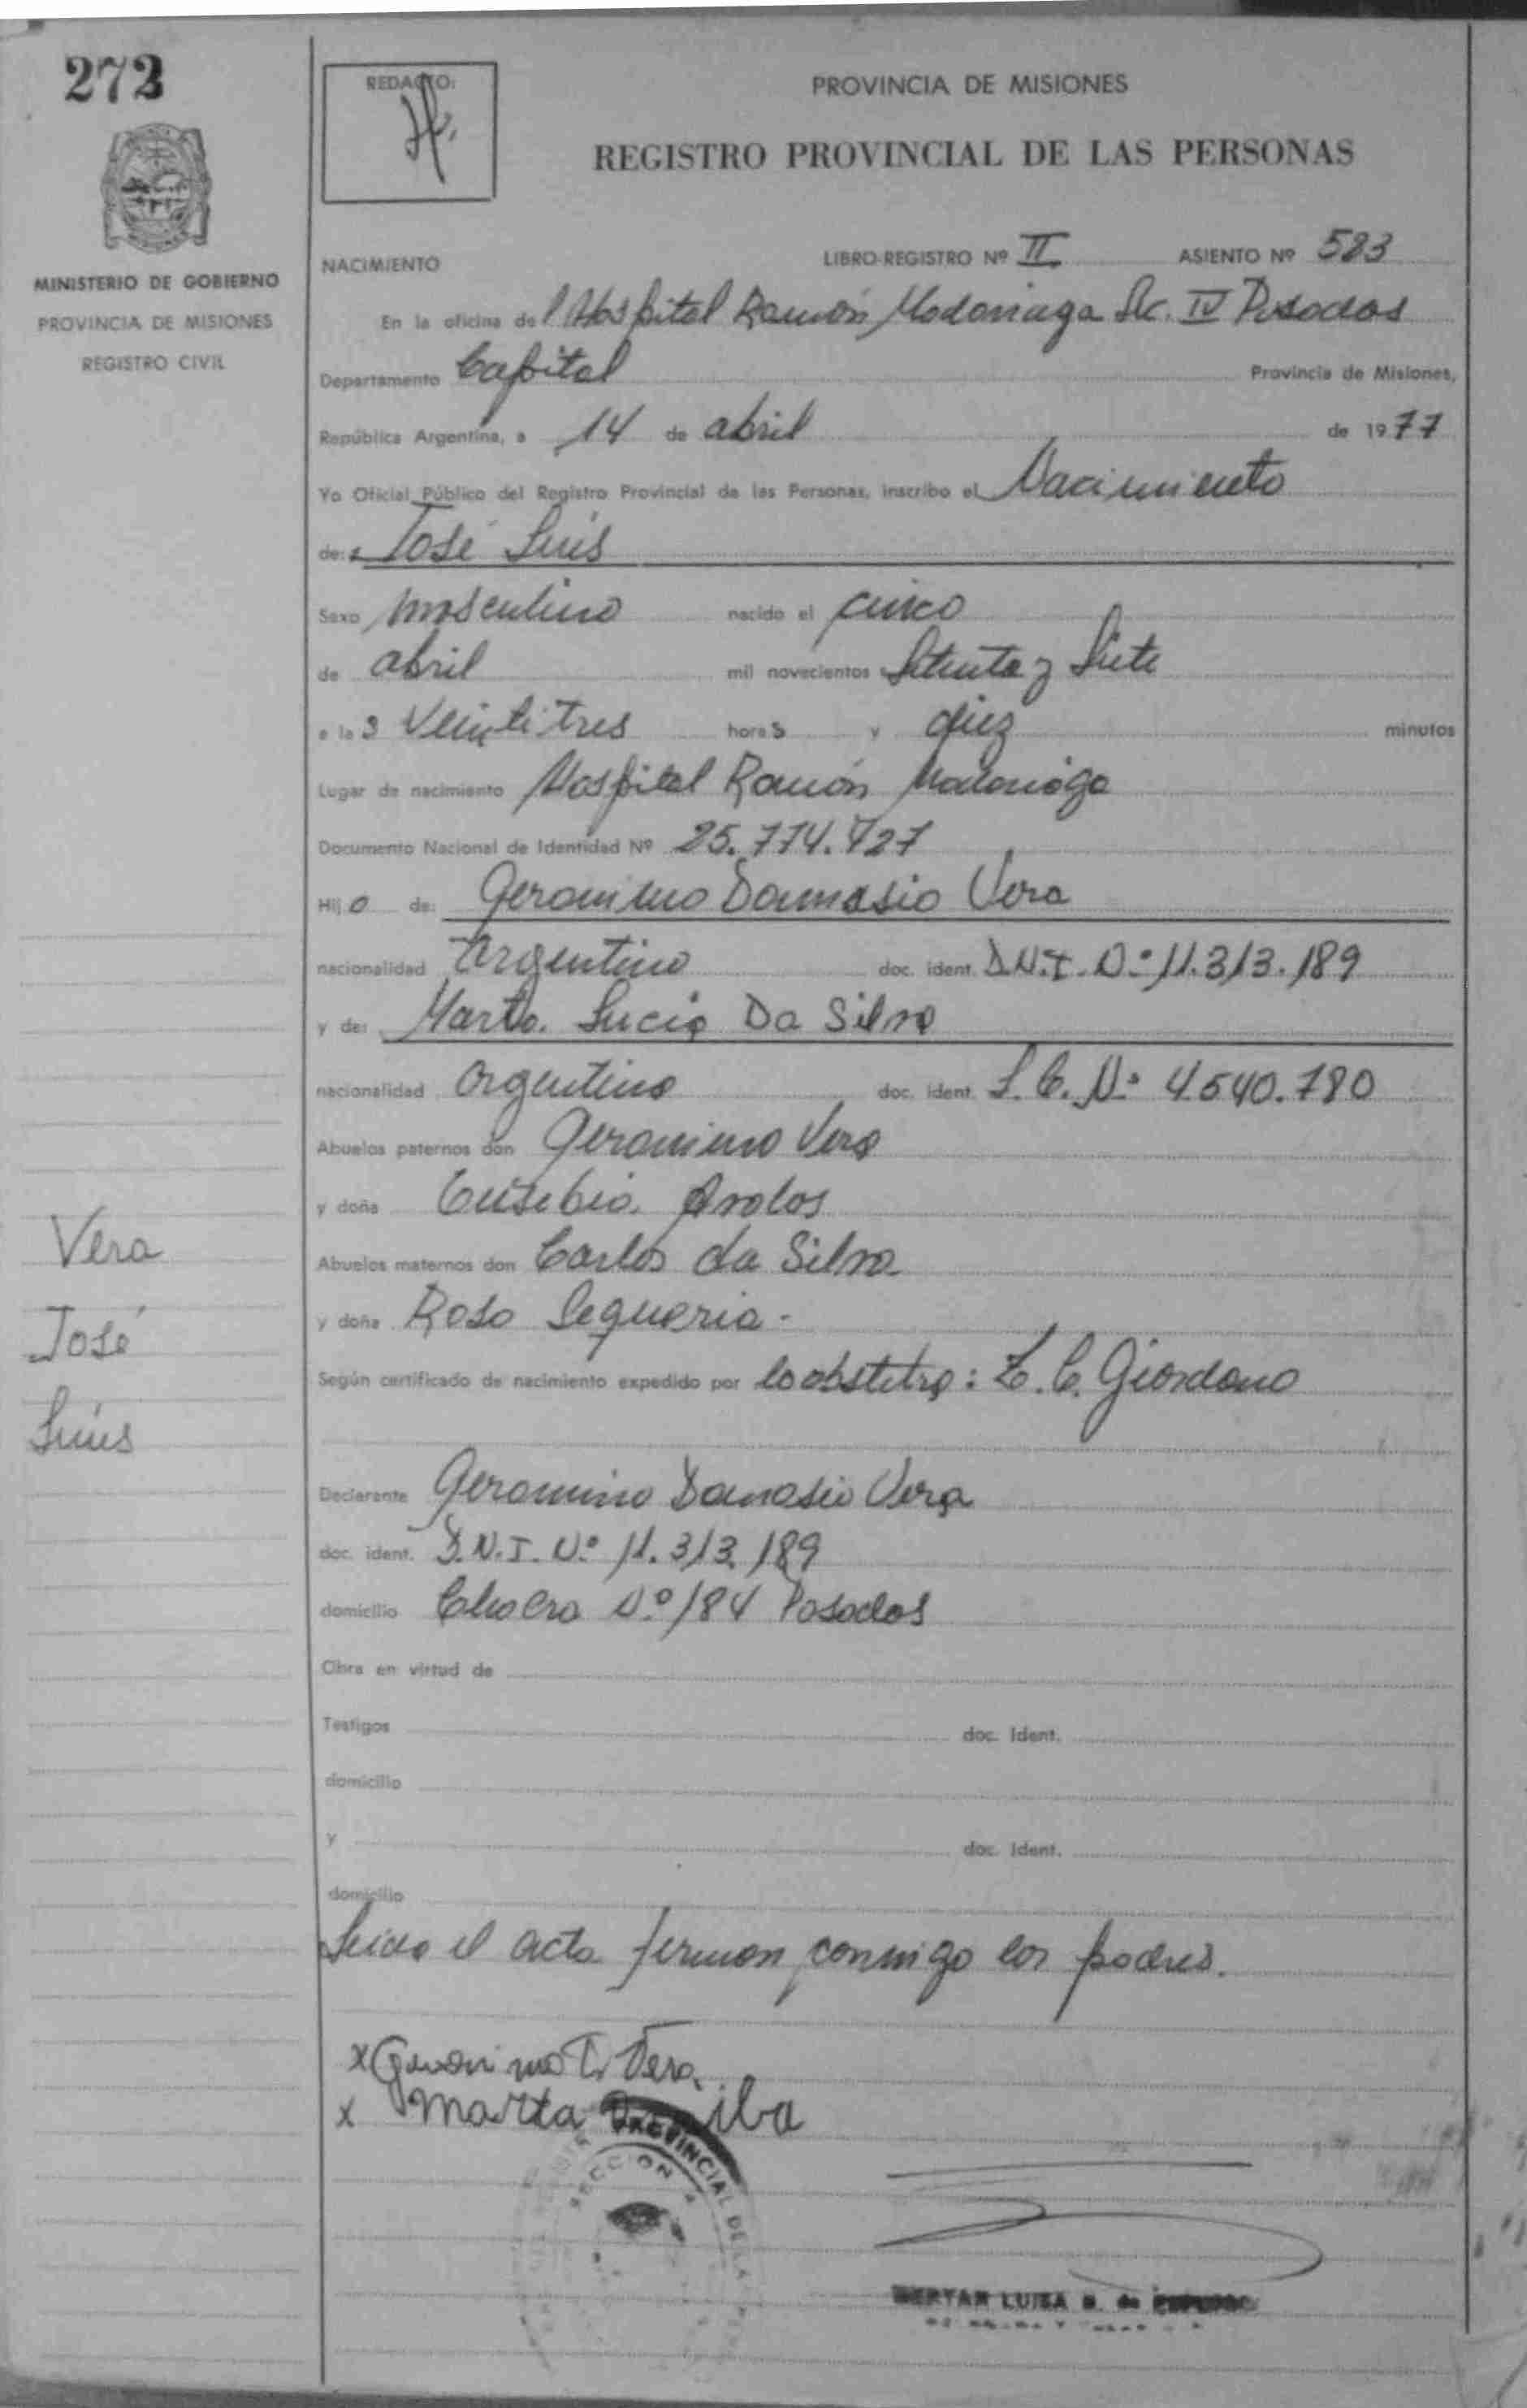 273
MINISTERIO DE GOBIERNO
PROVINCIA DE MISIONES
REGISTRO CIVIL
Vera
José
Luis
REDACTO:
PROVINCIA DE MISIONES
REGISTRO PROVINCIAL DE LAS PERSONAS
NACIMIENTO LIBRO-REGISTRO Nº II ASIENTO Nº 583
En la oficina del Hospital Ramón Madariaga Sec. IV Posadas
Departamento Capital Provincia de Misiones,
República Argentina, a 14 de abril de 1977
Yo Oficial Público del Registro Provincial de las Personas, inscribo el Nacimiento
de: José Luis
Sexo masculino nacido el cinco
de abril mil novecientos Setenta y Siete
a las Veintitres horas y diez minutos
Lugar de nacimiento Hospital Ramón Madariaga
Documento Nacional de Identidad Nº 25.774.727
Hijo de: Geronimo Damasio Vera
nacionalidad Argentino doc. ident. D.N.I. Nº 11.313.189
y de: Marta Lucia Da Silva
nacionalidad Argentina doc. ident. L.C. Nº 4.540.780
Abuelos paternos don Geronimo Vera
y doña Eusebia Avalos
Abuelos maternos don Carlos da Silva
y doña Rosa Sequeria -
Según certificado de nacimiento expedido por la obstetra: Z. C. Giordano
Declarante Geronimo Damasio Vera
doc. ident. D.N.I. Nº 11.313.189
domicilio Chacra Nº 184 Posadas
Obra en virtud de
Testigos doc. Ident.
domicilio
y doc. Ident.
domicilio
Leida el acta firman conmigo los padres.
x Geronimo D. Vera
x Marta Da Silva
PROVINCIAL DE LA
SECCION 4
LUISA